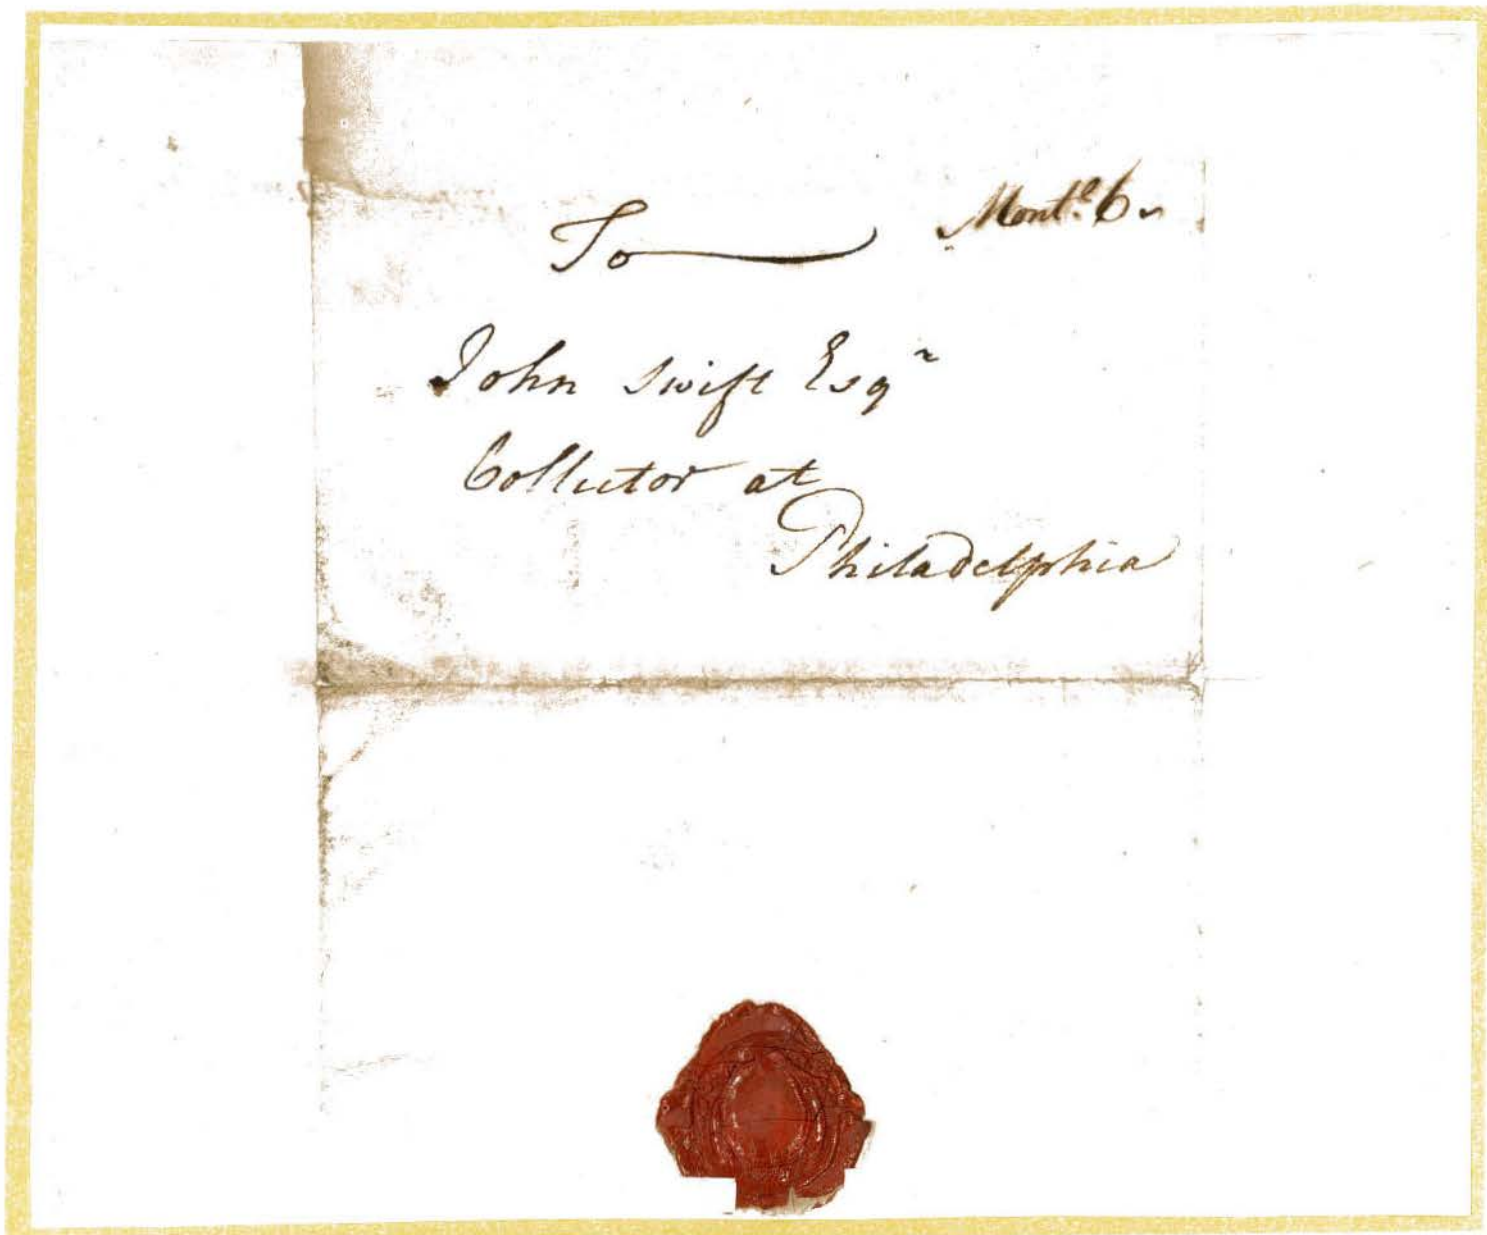 Mont.ᵉ 6
To
John Swift Esqʳ
Collector at
Philadelphia